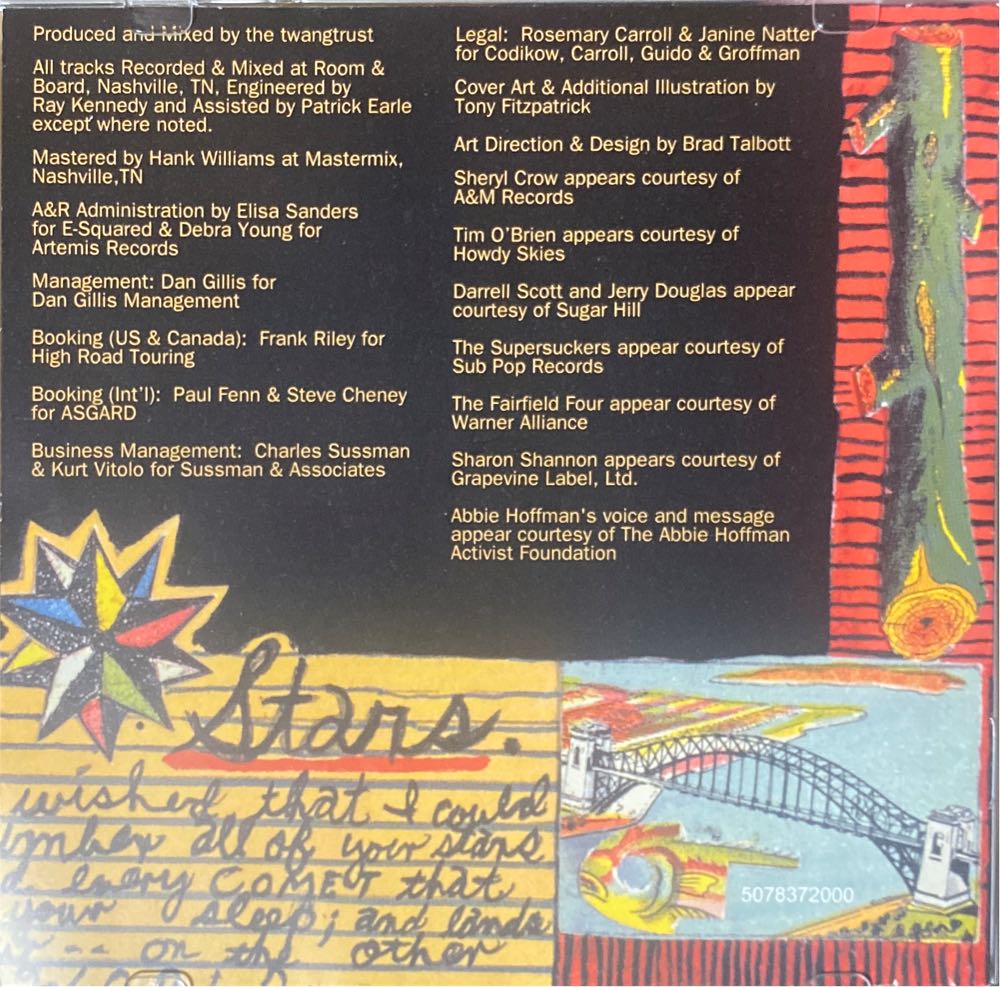 Produced and Mixed by the twangtrust
All tracks Recorded & Mixed at Room &
Board, Nashville, TN, Engineered by
Ray Kennedy and Assisted by Patrick Earle
except where noted.
Mastered by Hank Williams at Mastermix,
Nashville,TN
A&R Administration by Elisa Sanders
for E-Squared & Debra Young for
Artemis Records
Management: Dan Gillis for
Dan Gillis Management
Booking (US & Canada): Frank Riley for
High Road Touring
Booking (Int'l): Paul Fenn & Steve Cheney
for ASGARD
Business Management: Charles Sussman
& Kurt Vitolo for Sussman & Associates
Legal: Rosemary Carroll & Janine Natter
for Codikow, Carroll, Guido & Groffman
Cover Art & Additional Illustration by
Tony Fitzpatrick
Art Direction & Design by Brad Talbott
Sheryl Crow appears courtesy of
A&M Records
Tim O'Brien appears courtesy of
Howdy Skies
Darrell Scott and Jerry Douglas appear
courtesy of Sugar Hill
The Supersuckers appear courtesy of
Sub Pop Records
The Fairfield Four appear courtesy of
Warner Alliance
Sharon Shannon appears courtesy of
Grapevine Label, Ltd.
Abbie Hoffman's voice and message
appear courtesy of The Abbie Hoffman
Activist Foundation
Stars.
wished that I could
all of your stars
every COMET that
your sleep; and lands
-- on the other
5078372000